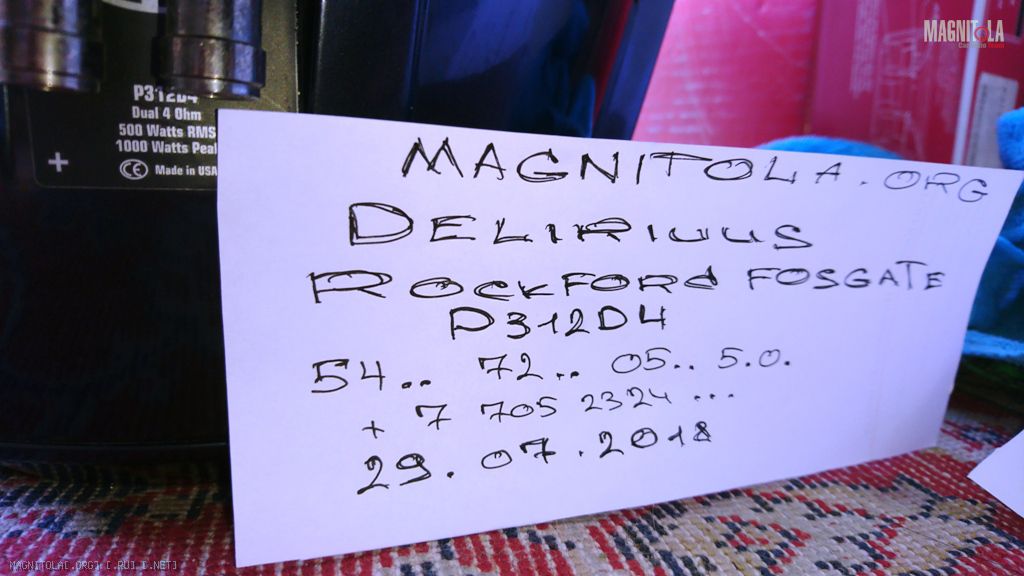 MAGNITOLA
P312D4
Dual 4 Ohm
500 Watts RMS
1000 Watts Peak
+
CE Made in USA
MAGNITOLA.ORG
DELIRIUUS
ROCKFORD FOSGATE
P312D4
54.. 72.. 05.. 5.0.
+ 7 705 2324 ...
29.07.2018
MAGNITOLA[.ORG] [.RU] [.NET]